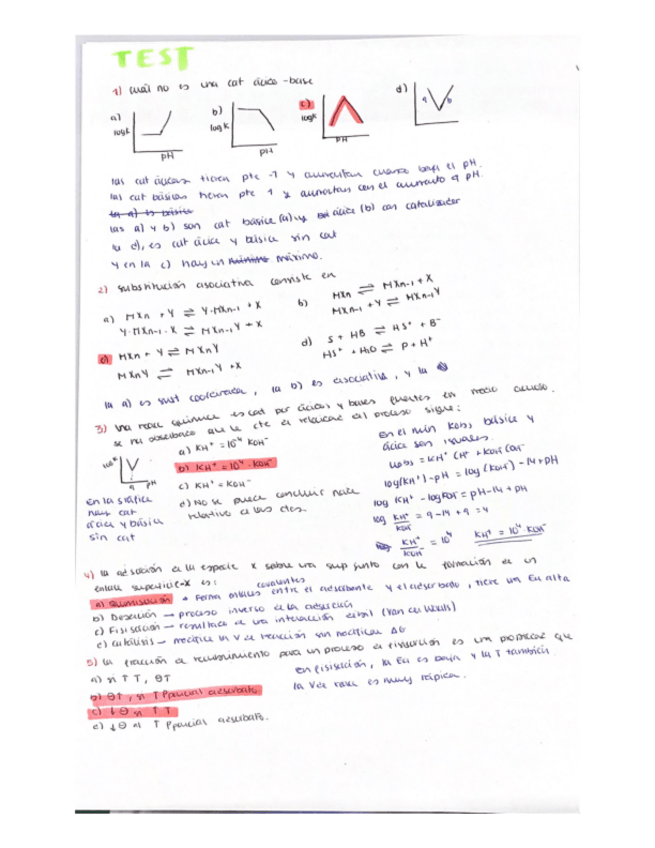 TEST
1) cuál no es una cat ácido-base
a) logK pH
b) logK pH
c) logK pH
d) a b
las cat ácidas tienen pte -1 y aumentan cuando baja el pH.
las cat básicas tienen pte 1 y aumentan con el aumento d pH.
las a) y b) son cat básica (a) y ácida (b) con catalizador
la d), es cat ácida y básica sin cat
y en la c) hay un máximo.
2) substitución asociativa consiste en
a) MXn + Y ⇌ Y·MXn-1 + X
Y·MXn-1·X ⇌ MXn-1Y + X
b) MXn ⇌ MXn-1 + X
MXn-1 + Y ⇌ MXn-1Y
c) MXn + Y ⇌ MXnY
MXnY ⇌ MXn-1Y + X
d) S + HB ⇌ HS+ + B-
HS+ + H2O ⇌ P + H+
la a) es sust coordinada, la b) es disociativa, y la
3) Una reacc química es cat por ácidos y bases fuertes en medio acuoso.
se ha observado que la cte d velocidad del proceso sigue:
logK pH
9
a) KH+ = 10⁻⁴ KOH-
b) KH+ = 10⁴ · KOH-
c) KH+ = KOH-
d) No se puede concluir nada
relativo a las ctes.
En la gráfica
hay cat
ácida y básica
sin cat
En el mín Kobs básica y
ácida son iguales.
log(KH+) - pH = log(KOH-) - 14 + pH
log KH+ - log KOH- = pH - 14 + pH
log KH+/KOH- = 9 - 14 + 9 = 4
KH+/KOH- = 10⁴ KH+ = 10⁴ KOH-
4) la adsorción de la especie X sobre una sup junto con la formación de un
enlace superficie-X es:
covalentes
a) Quimisorción * Forma enlaces entre el adsorbente y el adsorbato, tiene una Ea alta
b) Desorción → proceso inverso de la adsorción
c) Fisisorción → resultado de una interacción débil (Van der Waals)
d) catálisis → modifica la V de reacción sin modificar ΔG
5) la fracción de recubrimiento para un proceso de fisisorción es una propiedad que
a) si ↑ T, θ↑
b) θ↑, si ↑ Pparcial adsorbato
c) ↓ θ si ↑ T
d) ↓ θ si ↑ Pparcial adsorbato.
en fisisorción, la Ea es baja y la T también.
la V es muy rápida.